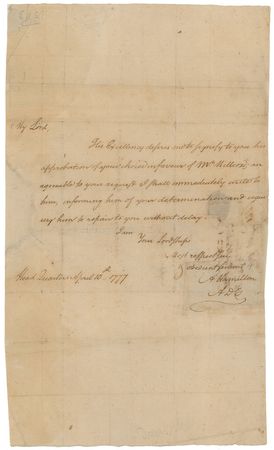 My Lord,
His Excellency desires me to signify to you his
approbation of your choice in favour of Mr
agreable to your request I shall immediately write to
him, informing him of your determination and requi
ring him to repair to you without delay.
I am
Your Lordships
Most respectful
obedient servant
A Hamilton
ADC
Head Quarters April 10th 1777